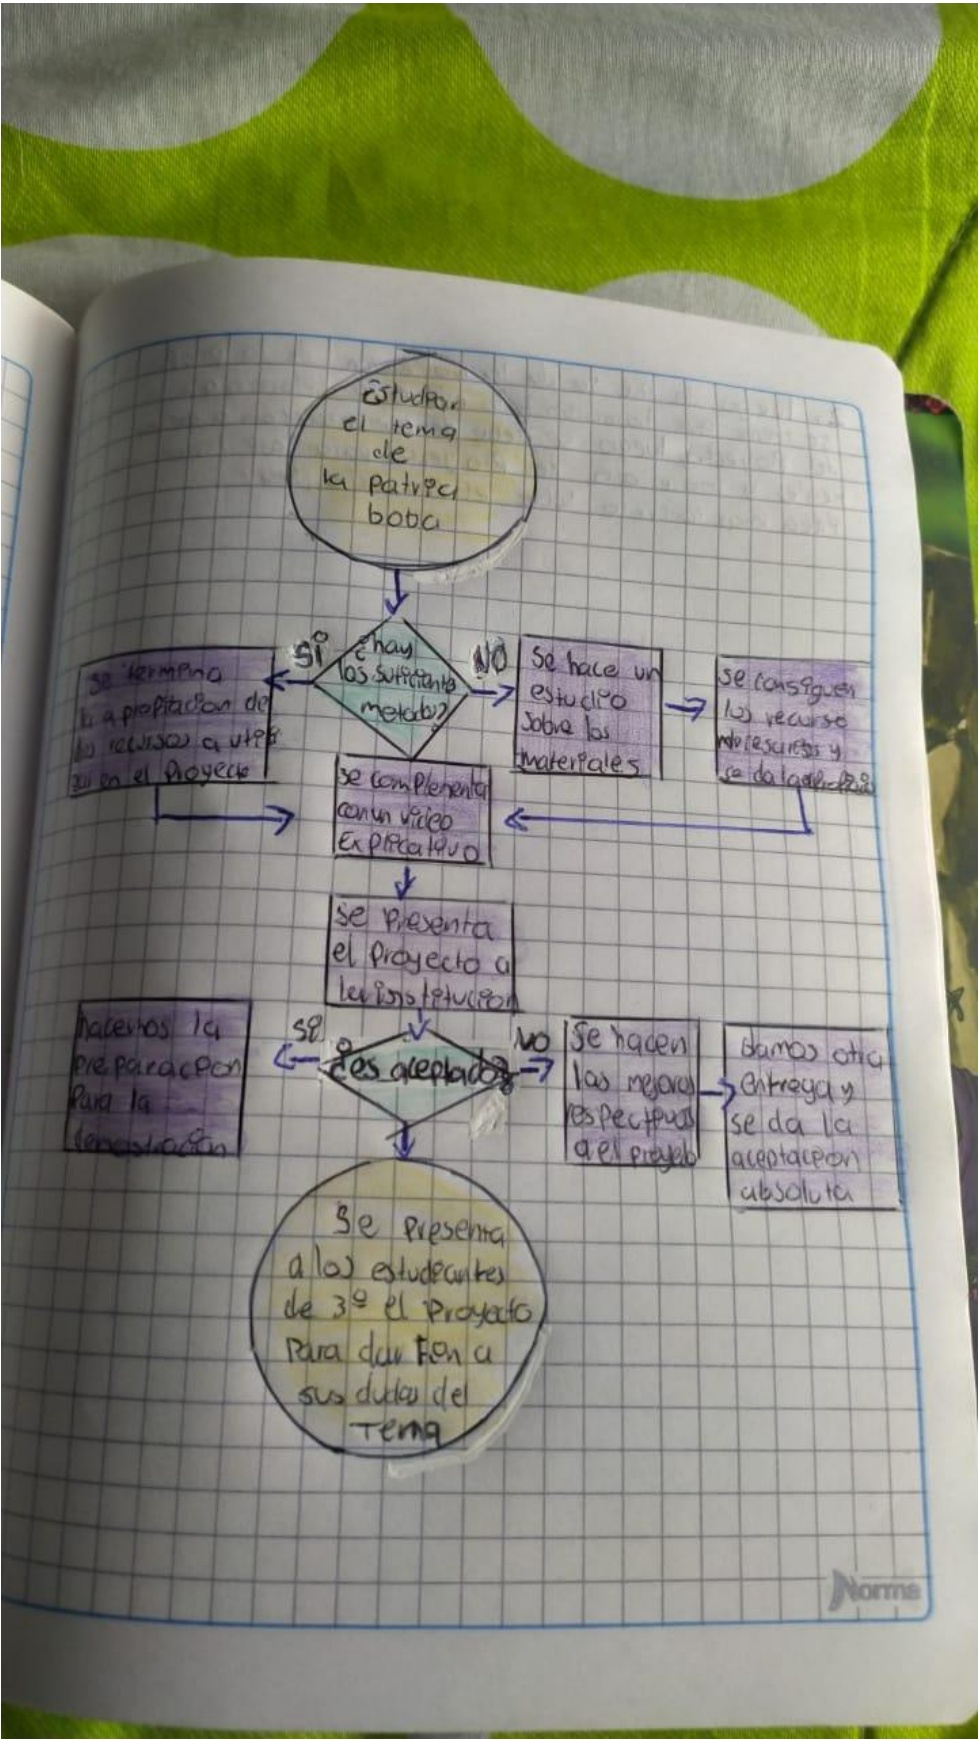 Estudiar
el tema
de
la patria
boba
¿hay
los suficiente
metodos?
Si
NO
se termina
la apropitacion de
los recursos a utili
zar en el Proyecto
Se hace un
estudio
sobre los
materiales
se consiguen
los recurso
necesarios y
se da la
se complementa
con un video
Explicativo
se Presenta
el Proyecto a
la institucion
¿es aceptado?
si
NO
hacemos la
preparacion
Para la
demostracion
Se hacen
las mejoras
respectivas
a el proyeto
damos otra
entrega y
se da la
aceptacion
absoluta
Se Presenta
a los estudiantes
de 3º el Proyecto
Para dar Fin a
sus dudas del
Tema
Norma